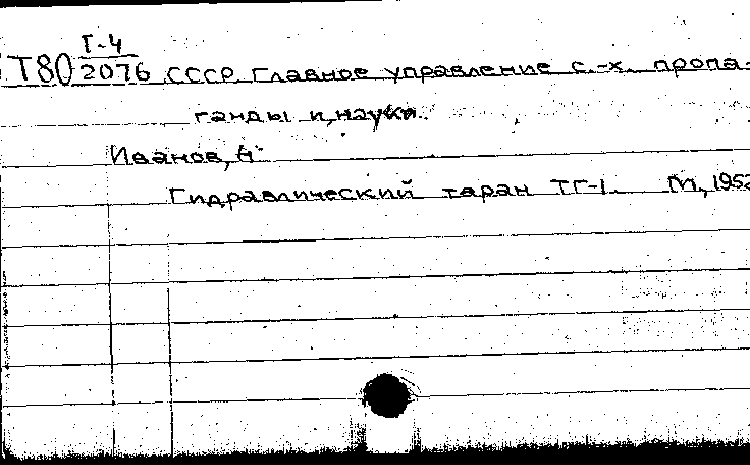 Т-4
Т80 2076 СССР. Главное управление с.-х. пропа-
ганды и науки.
Иванов, А
Гидравлический таран ТГ-1. М., 1952